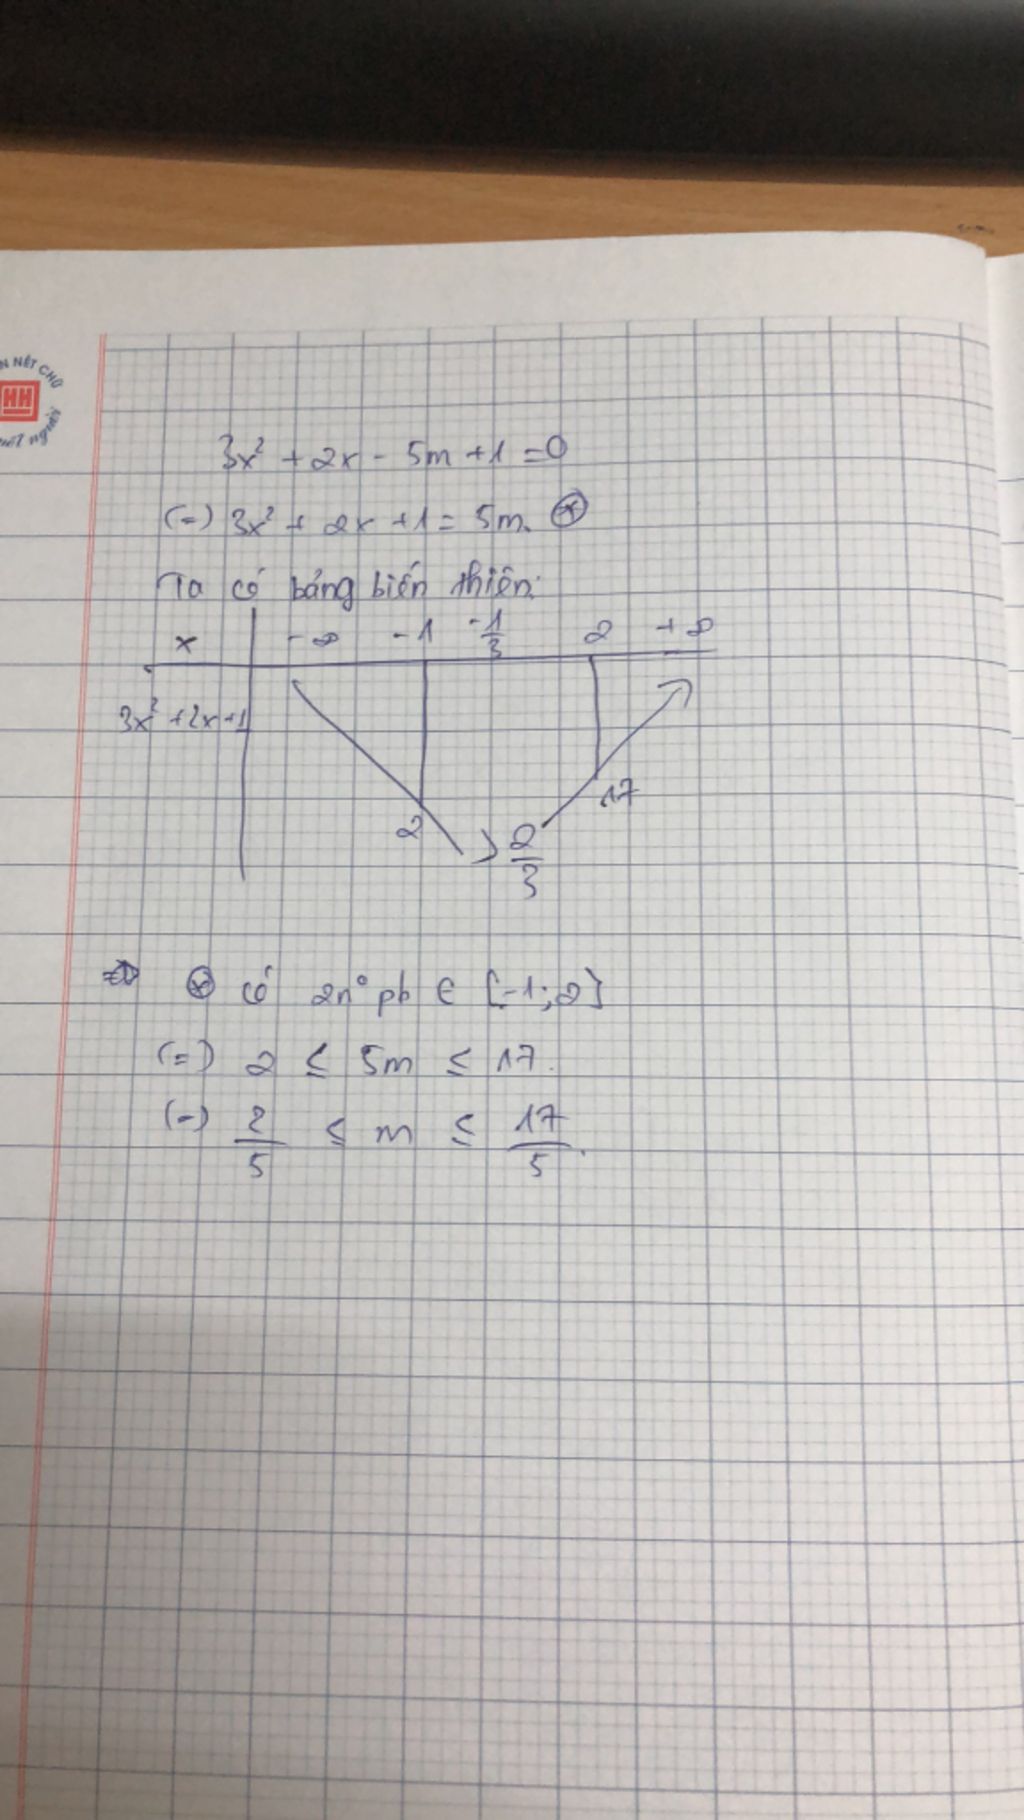 N NÉT CHỮ
HH
người
3x² + 2x - 5m + 1 = 0
(=) 3x² + 2x + 1 = 5m. ⊛
Ta có bảng biến thiên:
x -∞ -1 -1/3 2 +∞
3x² + 2x + 1
2 2/3 17
=> ⊛ có 2n° pb ∈ [-1; 2]
(=) 2 ≤ 5m ≤ 17.
(=) 2/5 ≤ m ≤ 17/5.